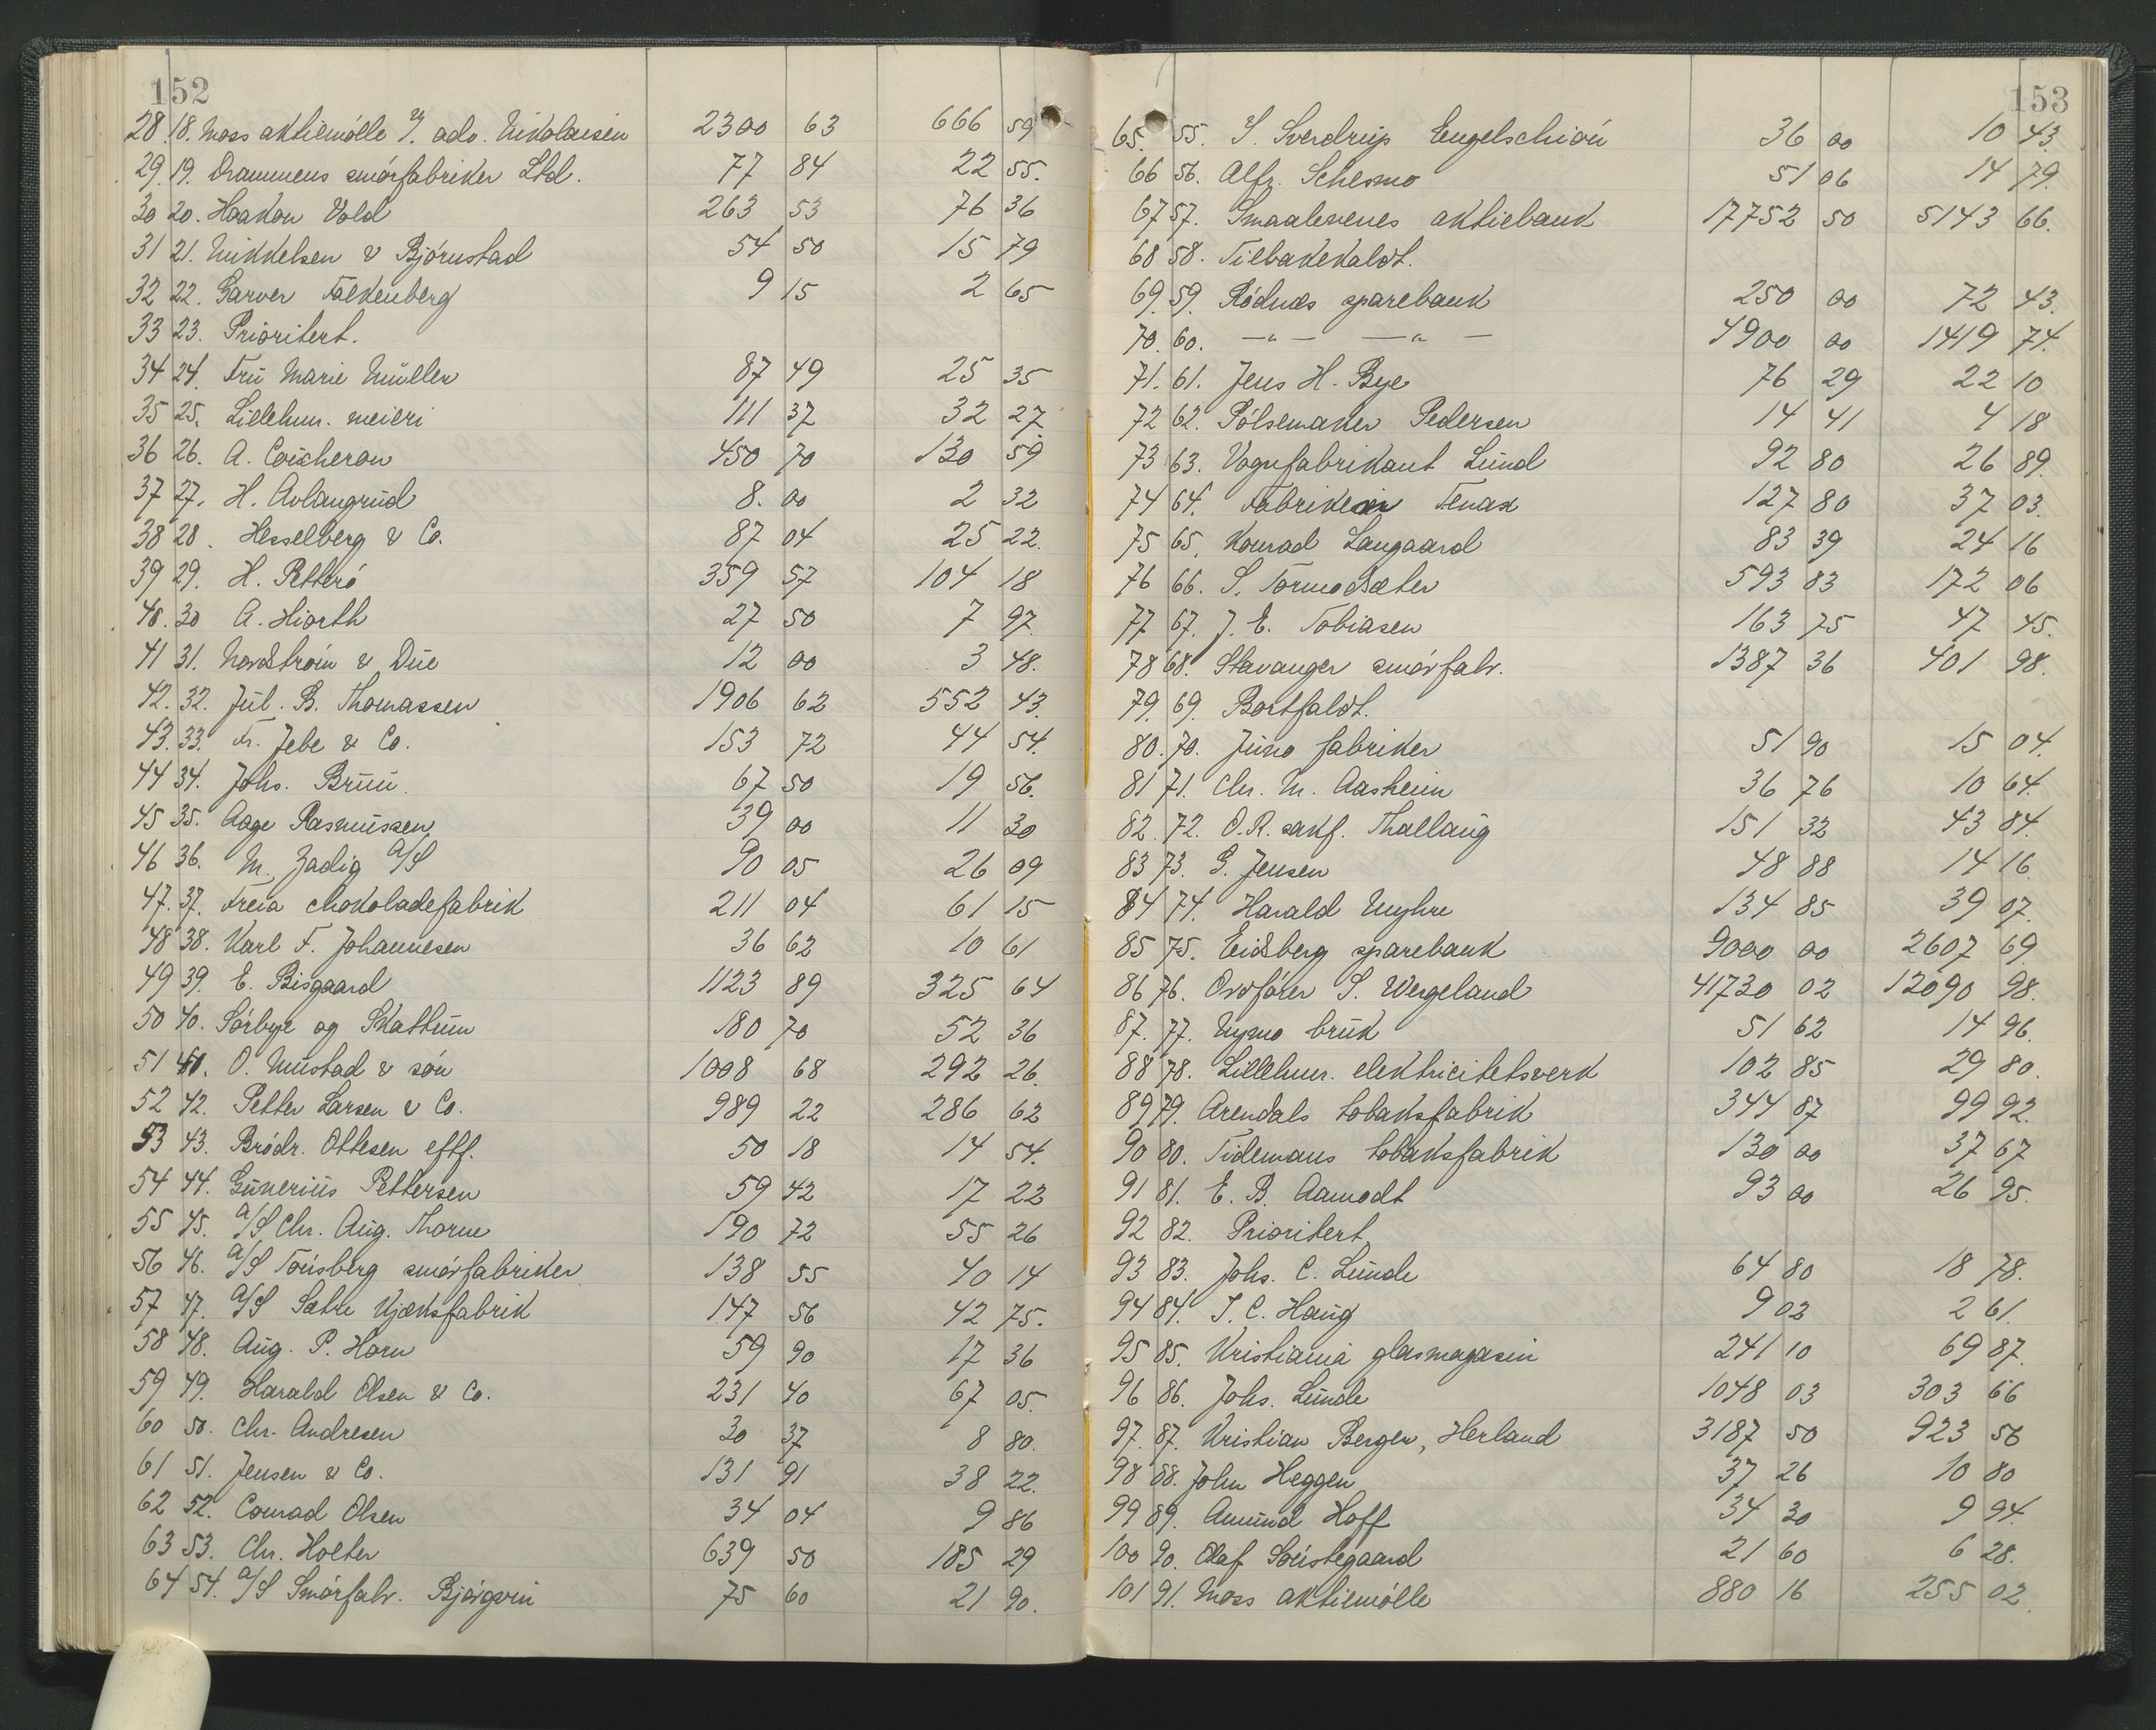 152
28 18. Moss aktiemölle v. adv. Nikolaisen 2300 63 666 59
29. 19. Drammens smörfabriker Ltd. 77 84 22 55.
30 20. Haakon Vold 263 53 76 36
31 21. Mikkelsen & Björnstad 54 50 15 79
32 22. Garver Falkenberg 9 15 2 65
33 23. Prioritert.
34 24. Fru Marie Müller 87 49 25 35
35 25. Lillehm. meieri 111 37 32 27
36 26. A. Coucheron 450 70 130 59
37 27. H. Avlangrud 8. 00 2 32
38 28. Hesselberg & Co. 87 04 25 22.
39 29. H. Petterö 359 57 104 18
40. 30 A. Hiorth 27 50 7 97.
41 31. Nordstrøm & Due 12 00 3 48.
42. 32. Jul. B. Thomassen 1906 62 552 43.
43. 33. Fr. Jebe & Co. 153 72 44 54.
44 34. Johs. Bruu. 67 50 19 56.
45 35. Aage Rasmussen 39 00 11 30
46 36. M. Zadig A/S 90 05 26 09
47. 37. Freia chokoladefabrik 211 04 61 15
48 38. Karl F. Johannesen 36 62 10 61
49 39. E. Bisgaard 1123 89 325 64
50 40. Sörbye og Skattum 180 70 52 36
51 41. O. Mustad & sön 1008 68 292 26.
52 42. Petter Larsen & Co. 989 22 286 62
53 43. Brödr. Ottesen eftf. 50 18 14 54.
54 44. Gunerius Pettersen 59 42 17 22
55 45. A/S Chr. Aug. Thorne 190 72 55 26
56 46. A/S Tönsberg smörfabriker 138 55 40 14
57 47. A/S Sætre Kjæksfabrik 147 56 42 75.
58 48. Aug. P. Horn 59 90 17 36
59 49. Harald Olsen & Co. 231 40 67 05.
60 50. Chr. Andresen 30 37 8 80.
61 51. Jensen & Co. 131 91 38 22.
62 52. Conrad Olsen 34 04 9 86
63 53. Chr. Holter 639 50 185 29
64 54. A/S Smörfabr. Björgvin 75 60 21 90.
153
65. 55. S. Sverdrup Engelschiön 36 00 10 43.
66 56. Alfr. Schesmo 51 06 14 79.
67 57. Smaalenenes aktiebank 17752 50 5143 66.
68 58. Tilbakekaldt.
69. 59. Rödnes sparebank 250 00 72 43.
70. 60. —"— —"— 4900 00 1419 74.
71. 61. Jens H. Bye 76 29 22 10
72 62. Pölsemaker Pedersen 14 41 4 18
73 63. Vognfabrikant Lund 92 80 26 89.
74 64. Fabriken Tenax 127 80 37 03.
75 65. Konrad Langaard 83 39 24 16
76 66. S. Tormodsæter 593 83 172 06
77 67. J. E. Tobiasen 163 75 47 45.
78 68. Stavanger smörfabr. 1387 36 401 98.
79. 69. Bortfaldt.
80. 70. Juno fabriker 51 90 15 04.
81 71. Chr. M. Aasheim 36 76 10 64.
82. 72. O.R. sakf. Thallaug 151 32 43 84.
83 73. G. Jensen 48 88 14 16.
84 74. Harald Myhre 134 85 39 07.
85 75. Eidsberg sparebank 9000 00 2607 69.
86 76. Ordförer S. Wergeland 41730 02 12090 98.
87. 77. Nymo bruk 51 62 14 96.
88 78. Lillehmr. elektricitetsverk 102 85 29 80.
89 79. Arendals tobaksfabrik 344 87 99 92.
90 80. Tidemans tobaksfabrik 130 00 37 67
91 81. E. B. Aamodt 93 00 26 95.
92 82. Prioritert
93 83. Johs. C. Lunde 64 80 18 78.
94 84. T. C. Haug 9 02 2 61.
95 85. Kristiania glasmagasin 241 10 69 87.
96 86. Johs. Lunde 1048 03 303 66
97. 87. Kristian Berger, Herland 3187 50 923 56
98 88. John Heggen 37 26 10 80
99 89. Amund Hoff 34 30 9 94.
100 90. Olaf Soustegaard 21 60 6 28.
101 91. Moss aktiemölle 880 16 255 02.